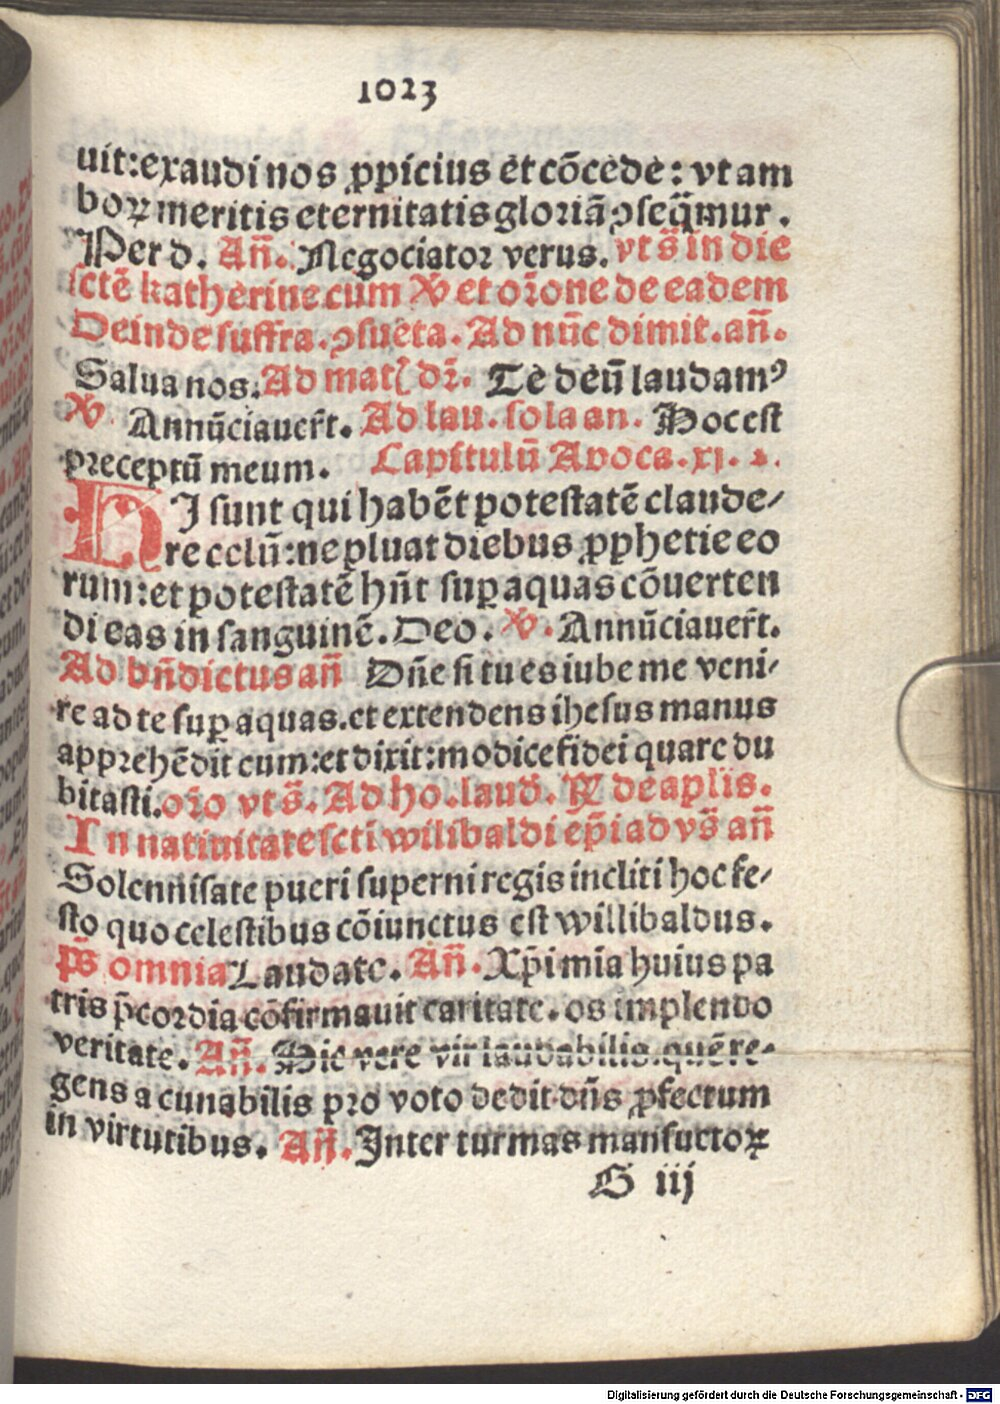 1023
uit:exaudi nos ꝓpicius et cõcede: vt am
boꝝ meritis eternitatis gloriã ꝯseq̃mur.
Per d. Añ. Negociator verus. vts̃ in die
sctẽ katherine cum ꝟ et or̃one de eadem
Deinde suffra. ꝯsueta. Ad nũc dimit. añ.
Salua nos. Ad mat̃ dr̃. Te deũ laudamꝰ
ꝟ. Annũciauer̃t. Ad lau. sola an. Hoc est
preceptũ meum. Capitulũ Apoca. xj.
HI sunt qui habẽt potestatẽ claude/
re celũ: ne pluat diebus ꝓphetie eo
rum: et potestatẽ hñt suꝑ aquas cõuerten
di eas in sanguinẽ. Deo. ꝟ. Annũciauer̃t.
Ad bñdictus añ Dñe si tu es iube me veni/
re ad te suꝑ aquas. et extendens ihesus manus
apprehẽdit eum: et dixit: modice fidei quare du
bitasti. oro̅ vts̃. Ad ho. laud̃. ꝶ de aplis.
In natiuitate scti wilibaldi ep̃i ad vs̃ añ
Solennisate pueri superni regis incliti hoc fe/
sto quo celestibus cõiunctus est willibaldus.
ps̃ omnia Laudate. Añ. Xp̃i mia huius pa
tris p̃cordia cõfirmauit caritate. os implendo
veritate. Añ. Hic vere vir laudabilis. quẽ re/
gens a cunabilis pro voto dedit dñs ꝓfectum
in virtutibus. Añ. Inter turmas mansuetoꝝ
G iij
Digitalisierung gefördert durch die Deutsche Forschungsgemeinschaft - DFG